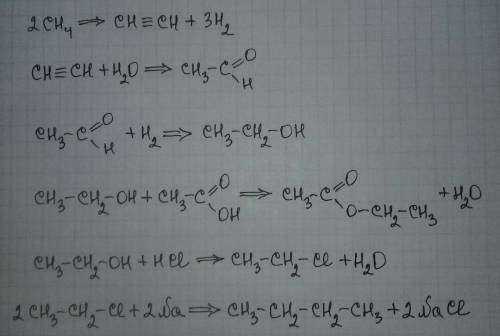 2CH₄ ⇒ CH≡CH + 3H₂
CH≡CH + H₂O ⇒ CH₃-C(=O)-H
CH₃-C(=O)-H + H₂ ⇒ CH₃-CH₂-OH
CH₃-CH₂-OH + CH₃-C(=O)-OH ⇒ CH₃-C(=O)-O-CH₂-CH₃ + H₂O
CH₃-CH₂-OH + HCl ⇒ CH₃-CH₂-Cl + H₂O
2CH₃-CH₂-Cl + 2Na ⇒ CH₃-CH₂-CH₂-CH₃ + 2NaCl